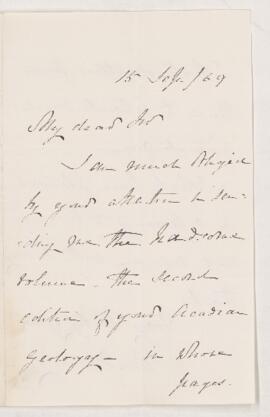 15 Sep /69
My dear Sir
I am much obliged
by your attention in sen-
ding me the handsome
volume - the second
edition of your Acadian
Geology - in whose
pages.